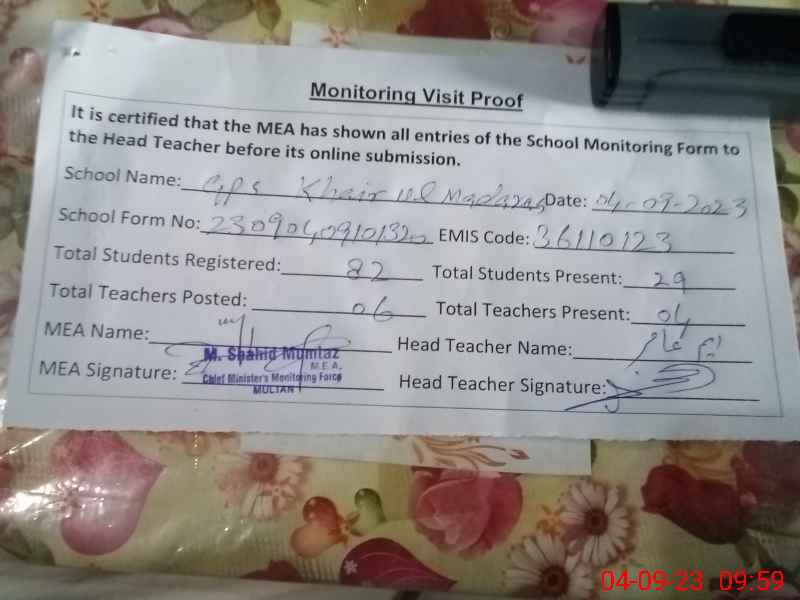 Monitoring Visit Proof
It is certified that the MEA has shown all entries of the School Monitoring Form to
the Head Teacher before its online submission.
School Name: GPS Khair ul Madaras Date: 04-09-2023
School Form No: EMIS Code: 36110123
Total Students Registered: 82 Total Students Present: 29
Total Teachers Posted: 06 Total Teachers Present: 04
MEA Name: Head Teacher Name:
M. Shahid Mumtaz
M.E.A.
MEA Signature: Chief Minister's Monitoring Force Head Teacher Signature:
MULTAN
04-09-23 09:59